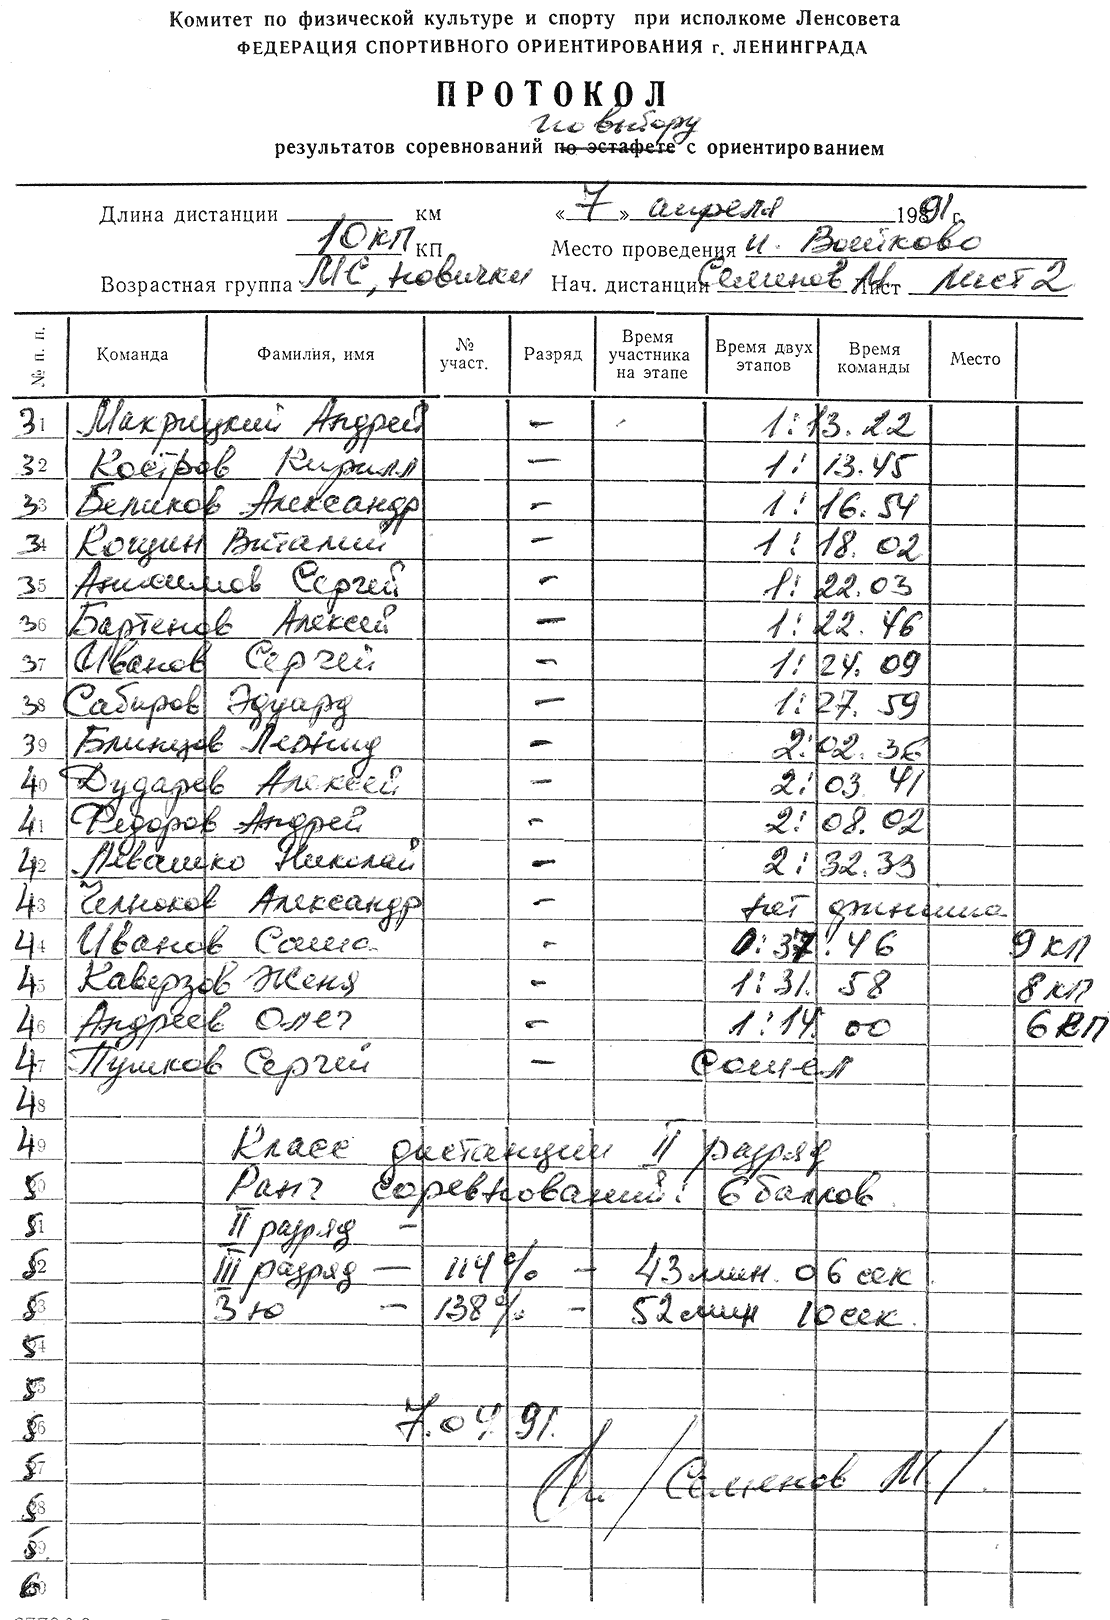 Комитет по физической культуре и спорту при исполкоме Ленсовета
ФЕДЕРАЦИЯ СПОРТИВНОГО ОРИЕНТИРОВАНИЯ г. ЛЕНИНГРАДА
ПРОТОКОЛ
по выбору
результатов соревнований по эстафете с ориентированием
Длина дистанции км «7» апреля 1991 г.
10 КП КП Место проведения п. Войково
Возрастная группа МС, новички Нач. дистанции Семенов М. Лист Лист 2
№ п. п. Команда Фамилия, имя № участ. Разряд Время участника на этапе Время двух этапов Время команды Место
31 Макрицкий Андрей – 1:13.22
32 Костров Кирилл – 1:13.45
33 Беликов Александр – 1:16.54
34 Кощин Виталий – 1:18.02
35 Анисимов Сергей – 1:22.03
36 Бартенов Алексей – 1:22.46
37 Иванов Сергей – 1:24.09
38 Сабиров Эдуард – 1:27.59
39 Блинцов Леонид – 2:02.36
40 Дударев Алексей – 2:03.41
41 Федоров Андрей – 2:08.02
42 Левашко Николай – 2:32.33
43 Челноков Александр – нет финиша
44 Иванов Саша – 0:37.46 9 КП
45 Каверзов Женя – 1:31.58 8 КП
46 Андреев Олег – 1:14.00 6 КП
47 Пушков Сергей – Сошел
48
49 Класс дистанции II разряд
50 Ранг соревнований: 6 баллов
51 II разряд –
52 III разряд – 114% – 43 мин. 06 сек
53 3 ю – 138% – 52 мин 10 сек.
54
55
56 7.04.91.
57 / Семенов М. /
58
59
60